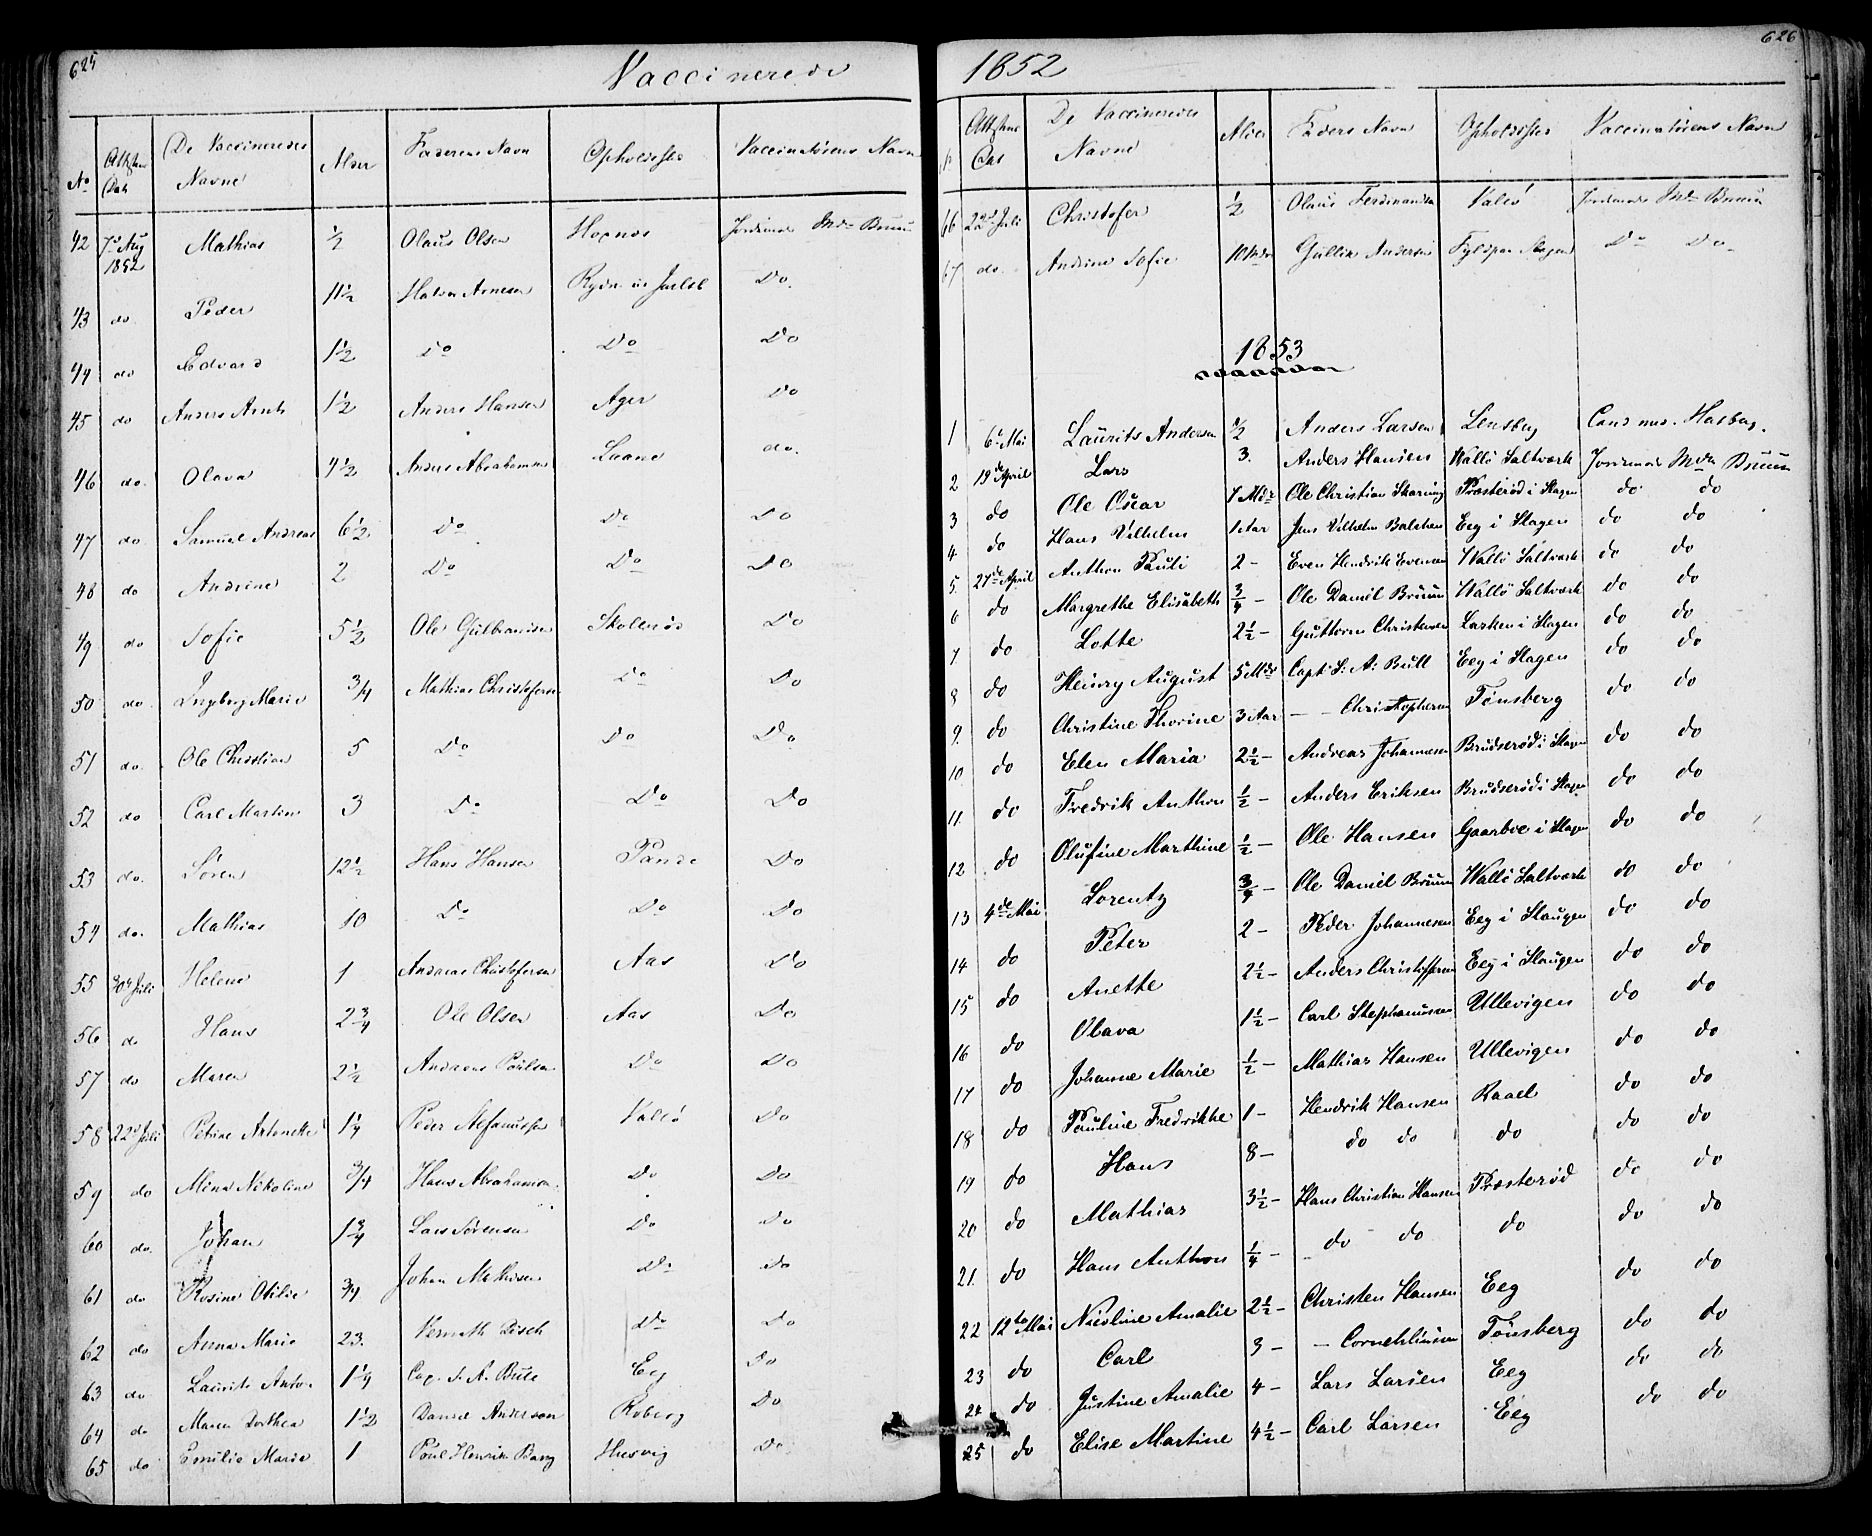 625
Vaccinerede
No Attestens Dat. De Vaccineredes Navne Alder Faderens Navn Opholdssted Vaccinateurens Navn
42 7d Aug 1852 Mathias ½ Olaus Olsen Hognes Jordmoder Md Bruun
43 do Peder 11½ Halvor Arnesen Do
44 do Edvard 1½ Do Do Do
45 do Anders Arnts 1½ Anders Hansen Ager Do
46 do Olava 4½ Anders Abrahamsen do.
47 do Samuel Andreas 6½ Do Do Do
48 do Andrine 2 Do Do Do
49 do Sofie 5½ Ole Gulbrandsen Do
50 do Ingborg Marie ¾ Mathias Christofersen Do Do
51 do Ole Christian 5 Do Do Do
52 do Carl Martin 3 Do Do Do
53 do. Søren 12½ Hans Hansen Do
54 do. Mathias 10 Do Do Do
55 30d Juli Helene 1 Andreas Christofersen Aas Do
56 do Hans 2¾ Ole Olsen Aas Do
57 do Maren 2½ Andreas Poulsen Do Do
58 22d Juli Petrine Antonette 1¼ Peder Stefanussen Vallö Do
59 do Mina Nikoline ¾ Hans Abrahamsen Do Do
60 do. Johan 1¾ Lars Sörensen Do Do
61 do Rosine Otilie ¾ Johan Mathisen Do do
62 do Anna Marie 23. Do Do
63 do Laurits Anton 1¼ Cap. S. A. Bull Eeg Do
64 do Maren Dorthea 1½ Daniel Anderson Roberg Do
65 do Emilie Marie 1 Poul Henrik Bang Husvig Do
626
1852
Attestens Dat De Vaccineredes Navne Alder Faders Navn Opholdssted Vaccinatørens Navn
66 22d Juli Christofer ½ Olaus Ferdinandsen Vallö Jordmoder Md Bruun
67 do. Andrine Sofie 10 Mdr Gullik Andersen Do Do
1853
1 6te Mai Laurits Andersen ½ Anders Larsen Lensberg Cand med. Hasberg.
2 19de April Lars 3. Anders Hansen Wallö Saltværk Jordmoder Mdm Bruun
3 do Ole Oscar 7 Mdr Ole Christian Skaring Præsterød i Slagen do do
4 do Hans Vilhelm 1 Aar Jens Vilhelm Balchen Eeg i Slagen do do
5 27de April Anthon Pauli 2 - Even Hendrik Evensen Wallö Saltværk do do
6 do Margrethe Elisabeth ¾ - Ole Daniel Bruun Wallö Saltværk do do
7 do Lotte 2½ - Guttorm Christensen Larken i Slagen do do
8 do Henry August 5 Mdr Capt. S: A: Bull Eeg i Slagen do do
9. do Christine Thorine 3 Aar - - Christophersen Tønsberg do do
10 do Elen Maria 2½ - Andreas Johannesen Brudserød i Slagen do do
11. do Fredrik Anthon ½ - Anders Eriksen Brudserød i Slagen do do
12 do Olufine Marthine ½ - Ole Hansen Gaarboe i Slagen do do
13 4de Mai Lorentz ¾ - Ole Daniel Bruun Wallö Saltværk do do
14 do Peter 2 - Peder Johannesen Eeg i Slaugen do do
15 do Anette 2½ - Anders Christoffersen Eeg i Slaugen do do
16 do Olava 1½ - Carl Stephanussen Ullevigen do do
17 do Johanne Marie ½ - Mathias Hansen Ullevigen do do
18 do Pauline Fredrikke 1 - Hendrik Hansen Raael do do
19 do Hans 8 - do do do do do
20 do Mathias 3½ - Hans Christian Hansen Præsterød do do
21. do Hans Anthon ¼ - do do do do do
22 12te Mai Nicoline Amalie 2½ - Christen Hansen Eeg do do
23 do Carl 3 - - Cornehliusen Tønsberg do do
24 do Justine Amalie 4 - Lars Larsen Eeg do do
25 do Elise Martine 4½ - Carl Larsen Eeg do do